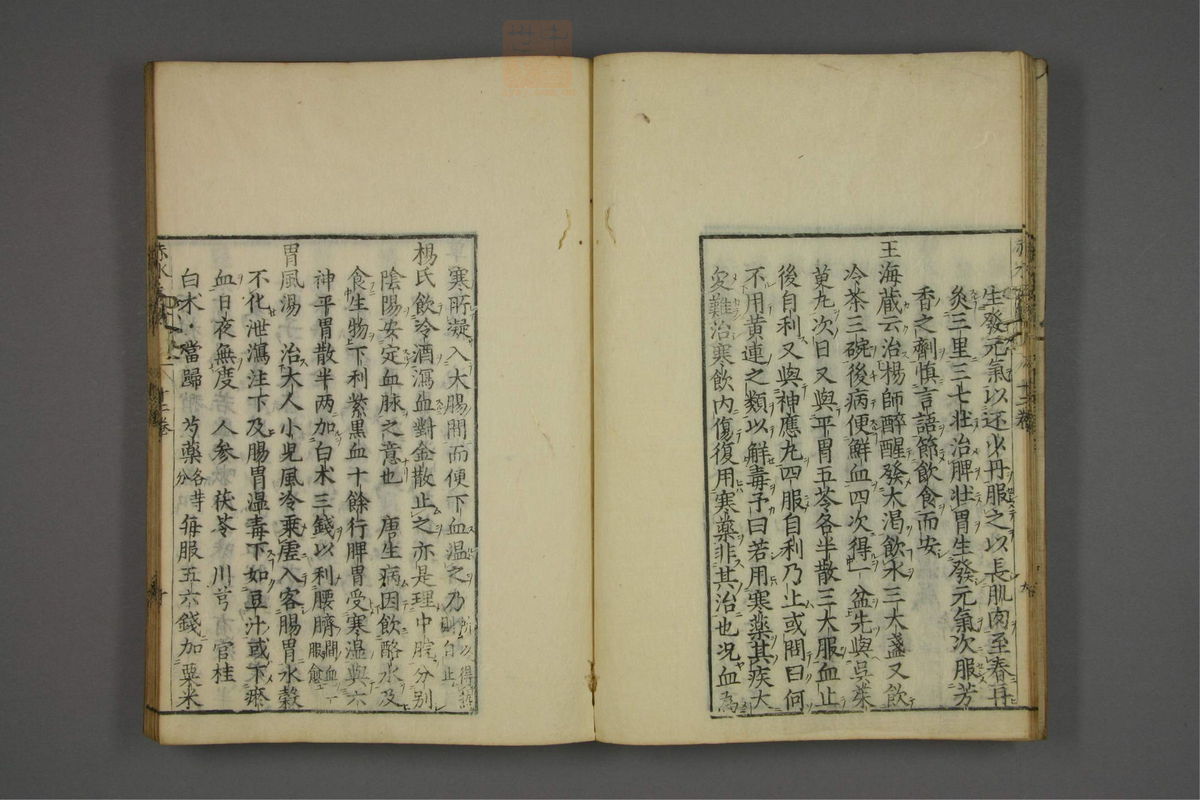 生發元氣以还少丹服之以長肌肉至春再
灸三里三七壮治脾壮胃生發元氣次服芳
香之劑慎言語節飲食而安
王海蔵云治楊師醉醒發大渴飲水三大盞又飲
冷茶三碗後病便鮮血四次得一盆先與呉茱
萸丸次日又與平胃五苓各半散三大服血止
後自利又與神應丸四服自利乃止或問曰何
不用黄連之類以解毒予曰若用寒薬其疾大
変難治寒飲内傷復用寒薬非其治也况血為
寒所凝入大腸間而便下血温之乃所以得訴則自止
楊氏飲冷酒瀉血對金散止之亦是理中脘分别
陰陽安定血脉之意也 唐生病因飲酪水及
食生物下利紫黒血十餘行脾胃受寒湿與六
神平胃散半两加白术三錢以利腰臍間血服愈
胃風湯 治大人小児風冷乗虚入客腸胃水穀
不化泄瀉注下及腸胃湿毒下如豆汁或下瘀
血日夜無度 人参 茯苓 川芎 官桂
白术 當歸 芍薬各等分 毎服五六錢加粟米